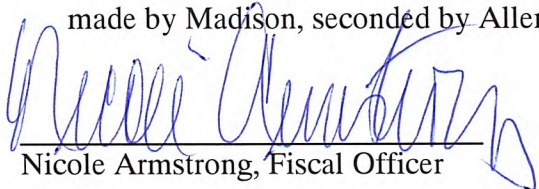 made by Madison, seconded by Allen
Nicole Armstrong
Nicole Armstrong, Fiscal Officer